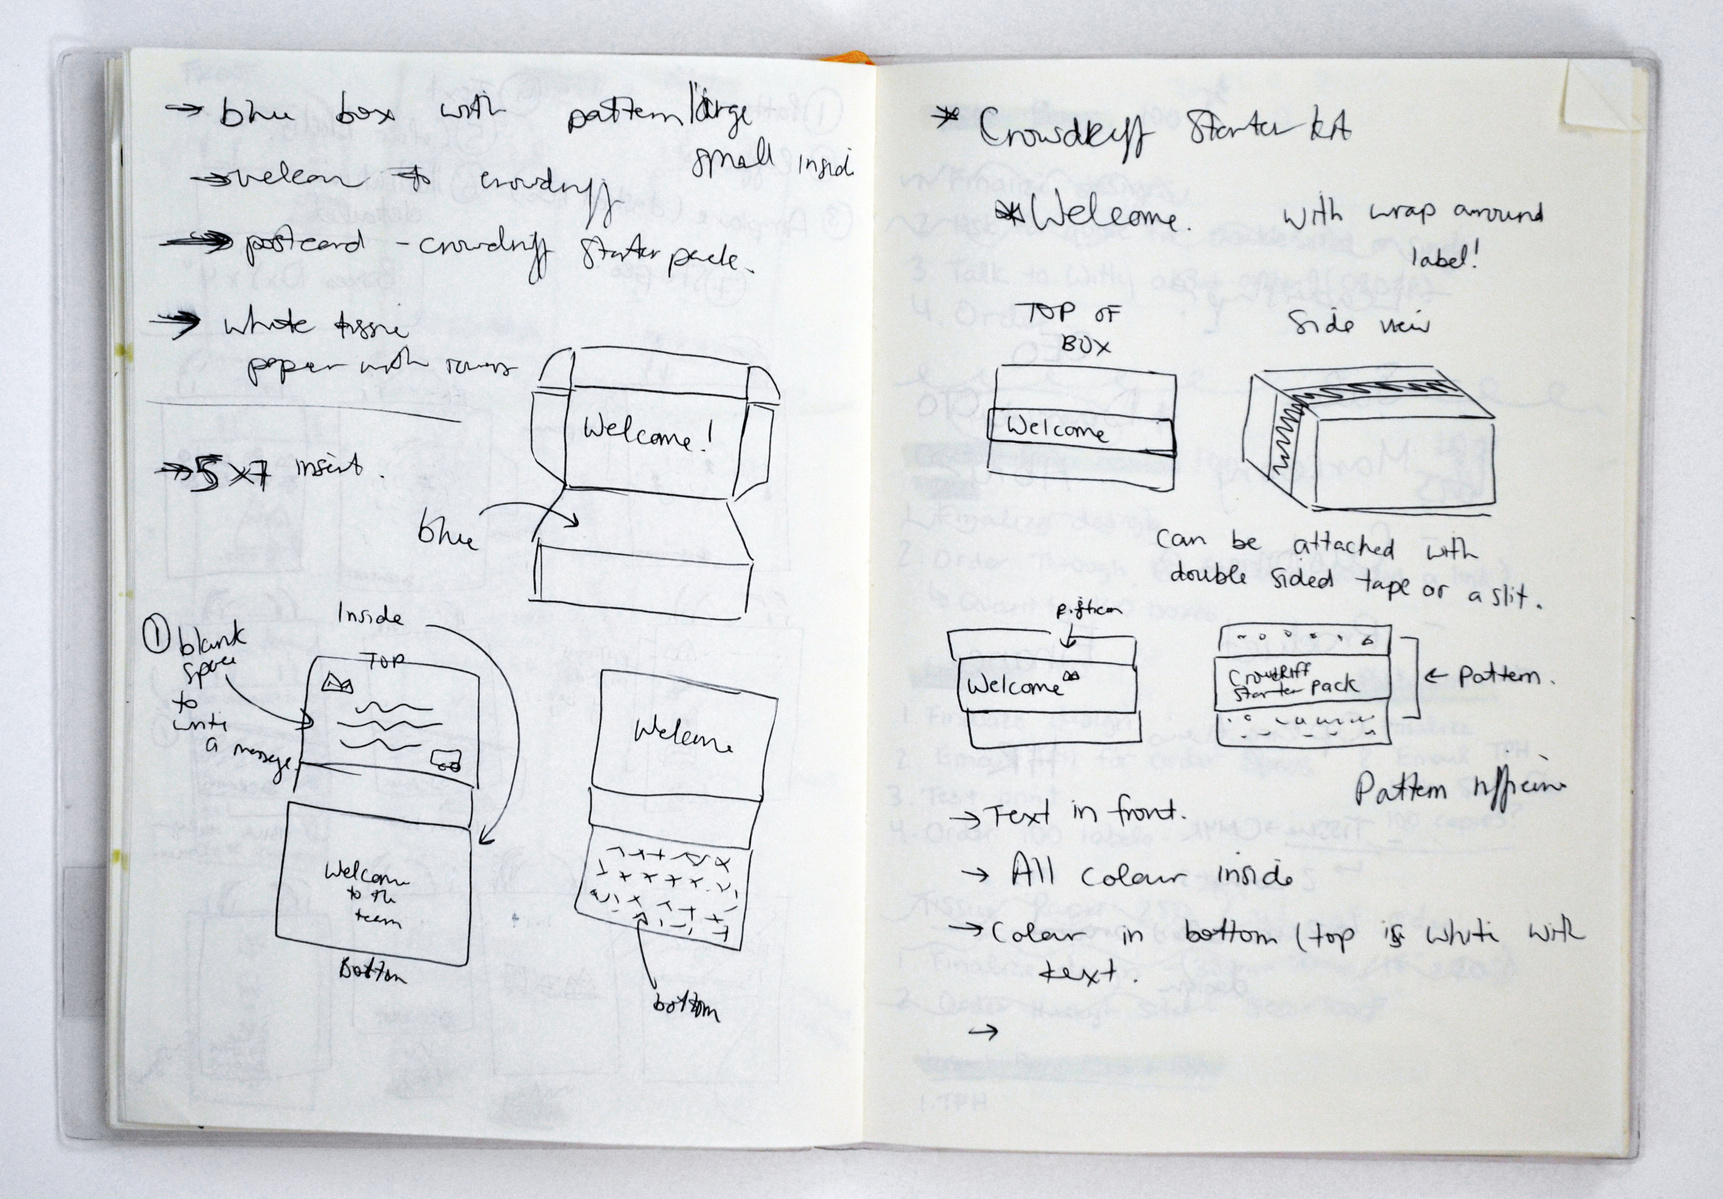 → blue box with pattern large
small inside
→ welcom to crowdriff
→ postcard - crowdriff starter pack.
→ white tissue
paper with
→ 5x7 insert.
Welcome!
blue
Inside
① blank
space
to
write
a message.
TOP
Welcome
to the
team
Bottom
Welcome
bottom
* Crowdriff Starter kit
* Welcome. with wrap arround
label!
TOP OF
BOX
Side view
Welcome
can be attached with
double sided tape or a slit.
Welcome
Crowdriff
Starter pack
← Pattern.
Pattern
→ Text in front.
→ All colour inside
→ Colour in bottom (top is white with
text.
→